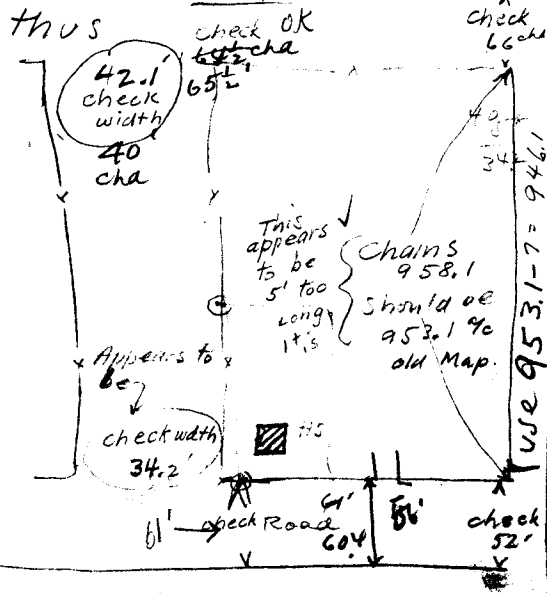 thus
check OK
64½ cha
65½'
check
66 cha
42.1'
check
width
40
cha
This
appears
to be
5' too
Long
It's
Chains
958.1
Should be
953.1 %c
old Map.
use 953.1-7= 946.1
Appears to
be
check width
34.2'
HS
61'
check Road
61'
60.4
56'
check
52'